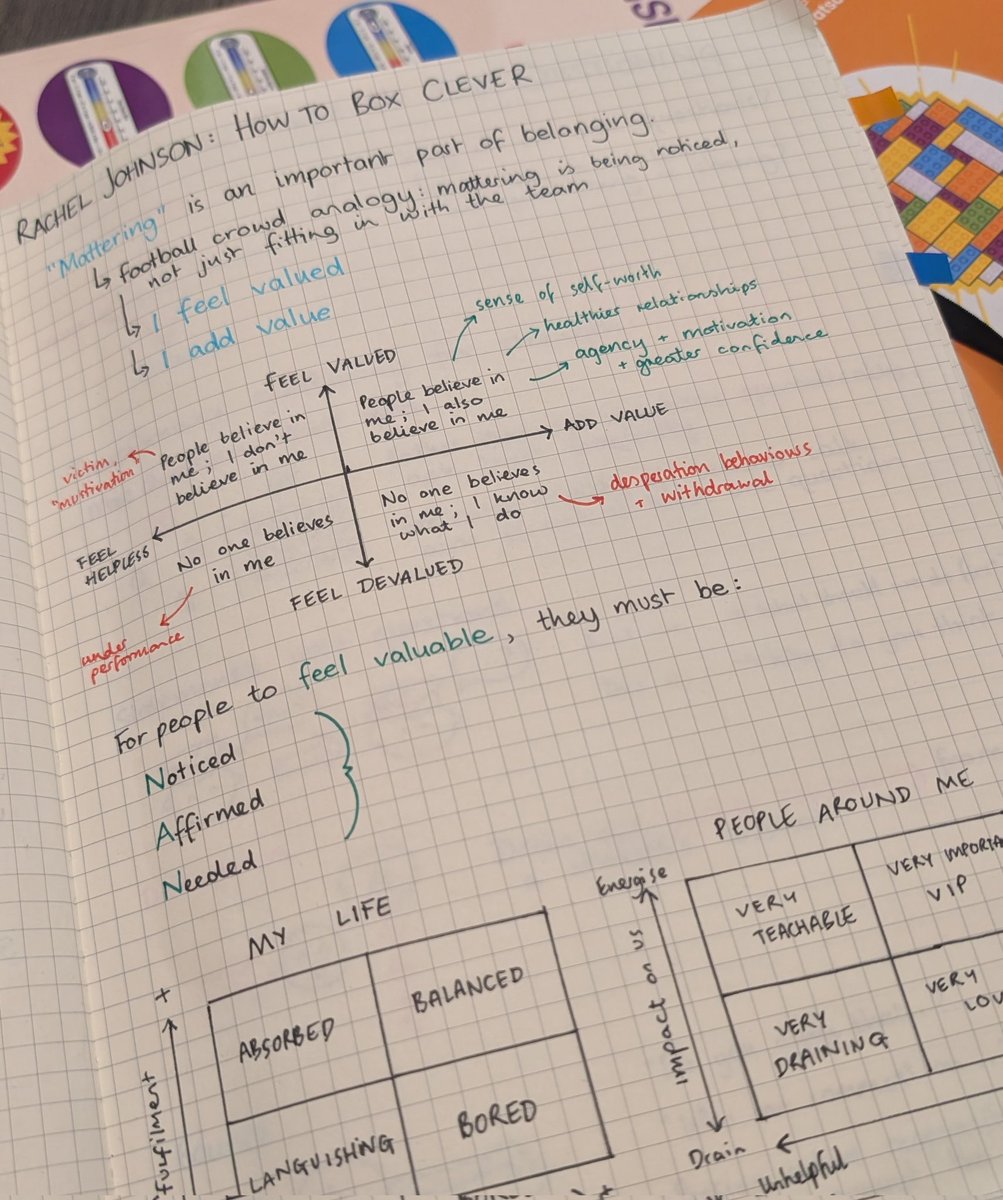 RACHEL JOHNSON: HOW TO BOX CLEVER
"Mattering" is an important part of belonging.
↳ football crowd analogy: mattering is being noticed,
not just fitting in with the team
↳ I feel valued
↳ I add value
FEEL VALUED
sense of self-worth
healthier relationships
agency + motivation
+ greater confidence
People believe in
me; I also
believe in me
ADD VALUE
People believe in
me; I don't
believe in me
victim,
No one believes
in me; I know
what I do
desperation behaviours
+ withdrawal
FEEL
HELPLESS
No one believes
in me
FEEL DEVALUED
under
performance
For people to feel valuable, they must be:
Noticed
Affirmed
Needed
MY LIFE
+
Fulfilment
ABSORBED
BALANCED
LANGUISHING
BORED
+
PEOPLE AROUND ME
Energise
Impact on us
Drain
VERY
TEACHABLE
VERY IMPORTA
VIP
VERY
DRAINING
VERY
LOV
Unhelpful